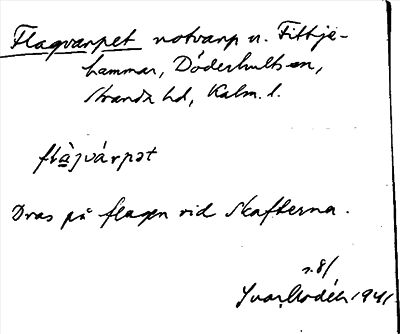 Flagvarpet notvarp u. Fittje-
hammar, Döderhults sn,
Stranda hd, Kalm. l.
flàjvárpət
Dras på flagen vid Skafterna.
s. 8/
Ivar Modéer 1941.